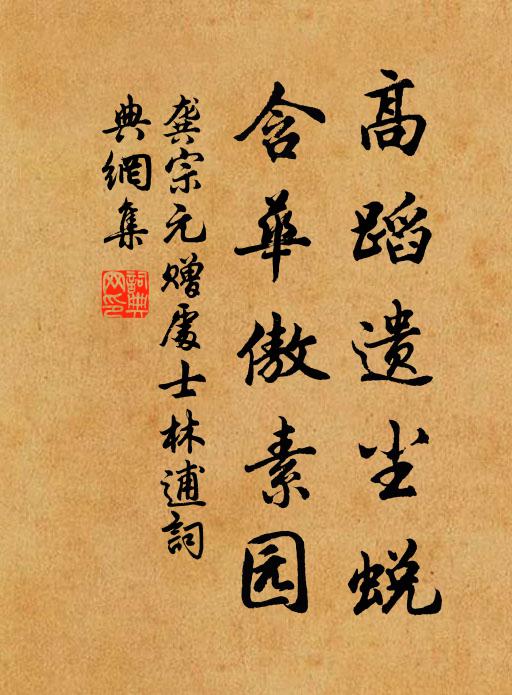 高蹈遗尘蜕
含华傲素园
龚宗元赠處士林逋詞
典網集
詞典
网印